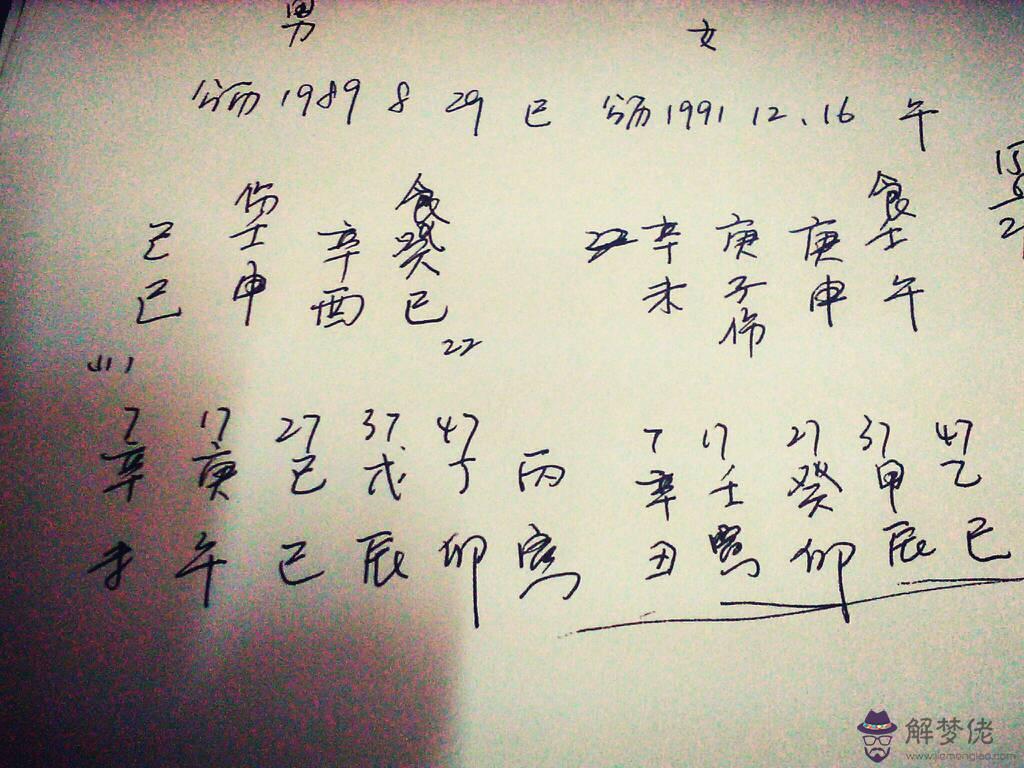 男 女
公历 1989 8 29 巳 公历 1991 12.16 午
伤 食 食
己 壬 辛 癸 辛 庚 庚 壬
巳 申 酉 巳 未 子 申 午
伤
22
7 17 27 37 47 7 17 27 37 47
辛 庚 己 戊 丁 丙 辛 壬 癸 甲 乙
未 午 巳 辰 卯 寅 丑 寅 卯 辰 巳
解梦佬
www.jiemenglao.com